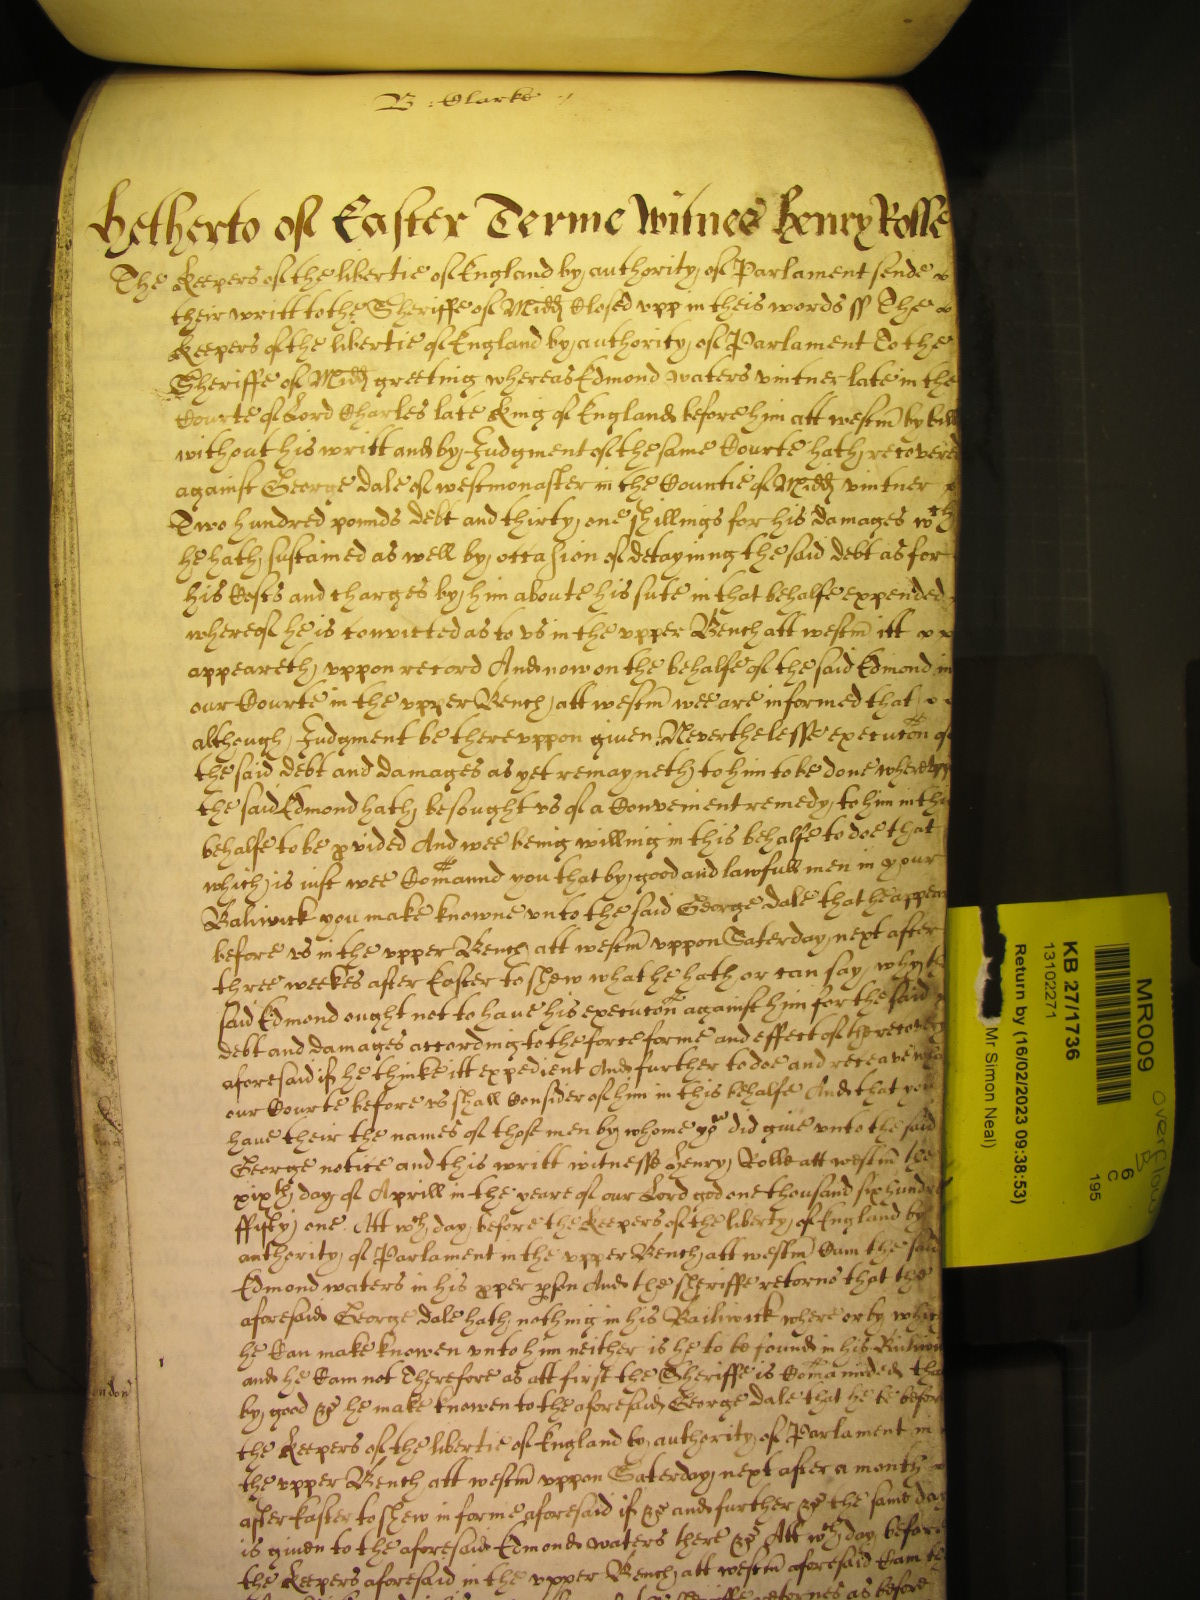 B : Clarke
hetherto of Easter Terme Witnes Henry Rolle
The Keepers of the libertie of England by authority of Parlament sende
their writt to the Sheriffe of Midd Closed vpp in theis words ss The
Keepers of the libertie of England by authority of Parlament To the
Sheriffe of Midd greeting whereas Edmond waters vintner late in the
Courte of Lord Charles late King of England before him att westm by bill
without his writt and by Judgment of the same Courte hath recovered
against George dale of westmonaster in the Countie of Midd vintner
Two hundred pounds debt and thirty one shillings for his damages wch
he hath sustained as well by occasion of detayning the said debt as for
his Costs and charges by him aboute his sute in that behalfe expended
whereof he is convicted as to vs in the vpper Bench att westm itt
appeareth vppon record And now on the behalfe of the said Edmond in
our Courte in the vpper Bench att westm wee are informed that
although Judgment be therevppon given Neverthelesse execucon of
the said debt and damages as yet remayneth to him to be done
the said Edmond hath besought vs of a Convenient remedy to him in this
behalfe to be pvided And wee being willing in this behalfe to doe that
which is iust wee Comannd you that by good and lawfull men in your
Baliwick you make knowne vnto the said George dale that he appear
before vs in the vpper Bench att westm vppon Saterday next after
three weekes after Easter to shew what he hath or can say why the
said Edmond ought not to haue his execucon against him for the said
debt and damages according to the force forme and effect of the recovery
aforesaid if he thinke itt expedient And further to doe and receave what
our Courte before vs shall Consider of him in this behalfe And that you
haue their the names of those men by whome yo did giue vnto the said
George notice and this writt witnesse Henry Rolle att westm the
xixth day of Aprill in the yeare of our Lord god one thousand six hundred
ffifty one Att wch day before the Keepers of the liberty of England by
authority of Parlament in the vpper Bench att westm Cam the said
Edmond waters in his pper pson And the sheriffe retorne that the
aforesaid George dale hath nothing in his Bailiwick where or by which
he Can make knowen vnto him neither is he to be found in his Bailiwick
and he Cam not Therefore as att first the Sheriffe is Comannded that
by good &c he make knowen to the aforesaid George dale that he be before
the Keepers of the libertie of England by authority of Parlament in
the vpper Bench att westm vppon Saterday next after a month
after Easter to shew in forme aforesaid if &c and further &c the same day
is given to the aforesaid Edmond waters there &c Att wch day before
the Keepers aforesaid in the vpper Bench att westm aforesaid Cam the
retornes as before
MR009
KB 27/1736
13102271
Return by (16/02/2023 09:38:53)
Mr Simon Neal)
6
C
195
Overflow
B